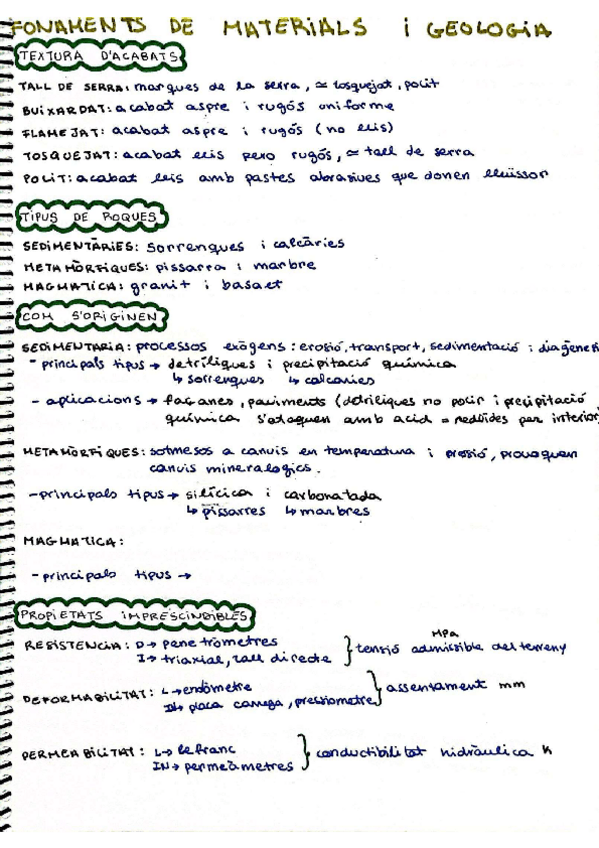 FONAMENTS DE MATERIALS i GEOLOGIA
TEXTURA D'ACABATS
TALL DE SERRA: marques de la serra, ≃ tosquejat, polit
BUIXARDAT: acabat aspre i rugós uniforme
FLAMEJAT: acabat aspre i rugós (no llis)
TOSQUEJAT: acabat llis pero rugós, ≃ tall de serra
POLIT: acabat llis amb pastes abrasives que donen lluïssor
TIPUS DE ROQUES
SEDIMENTÀRIES: sorrenques i calcàries
METAMÒRFIQUES: pissarra i marbre
MAGMATICA: granit i basalt
COM S'ORIGINEN
SEDIMENTARIA: processos exògens: erosió, transport, sedimentació i diagènesi
- principals tipus → detrítiques i precipitació química
↳ sorrenques ↳ calcaries
- aplicacions → façanes, paviments (detritiques no polir i precipitació
química s'ataquen amb acid = reduïdes per interior)
METAMÒRFIQUES: sotmesos a canvis en temperatura i pressió, provoquen
canvis mineralogics.
- principals tipus → silícica i carbonatada
↳ pissarres ↳ marbres
MAGMATICA:
- principals tipus →
PROPIETATS IMPRESCINDIBLES
RESISTENCIA: D → penetròmetres
I → triaxial, tall directe } tensió admissible del terreny MPa
DEFORMABILITAT: L → endòmetre
IN → placa carrega, pressiometre } assentament mm
PERMEABILITAT: L → lefranc
IN → permeàmetres } conductibilitat hidràulica K